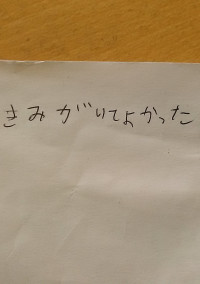 きみがいてよかった